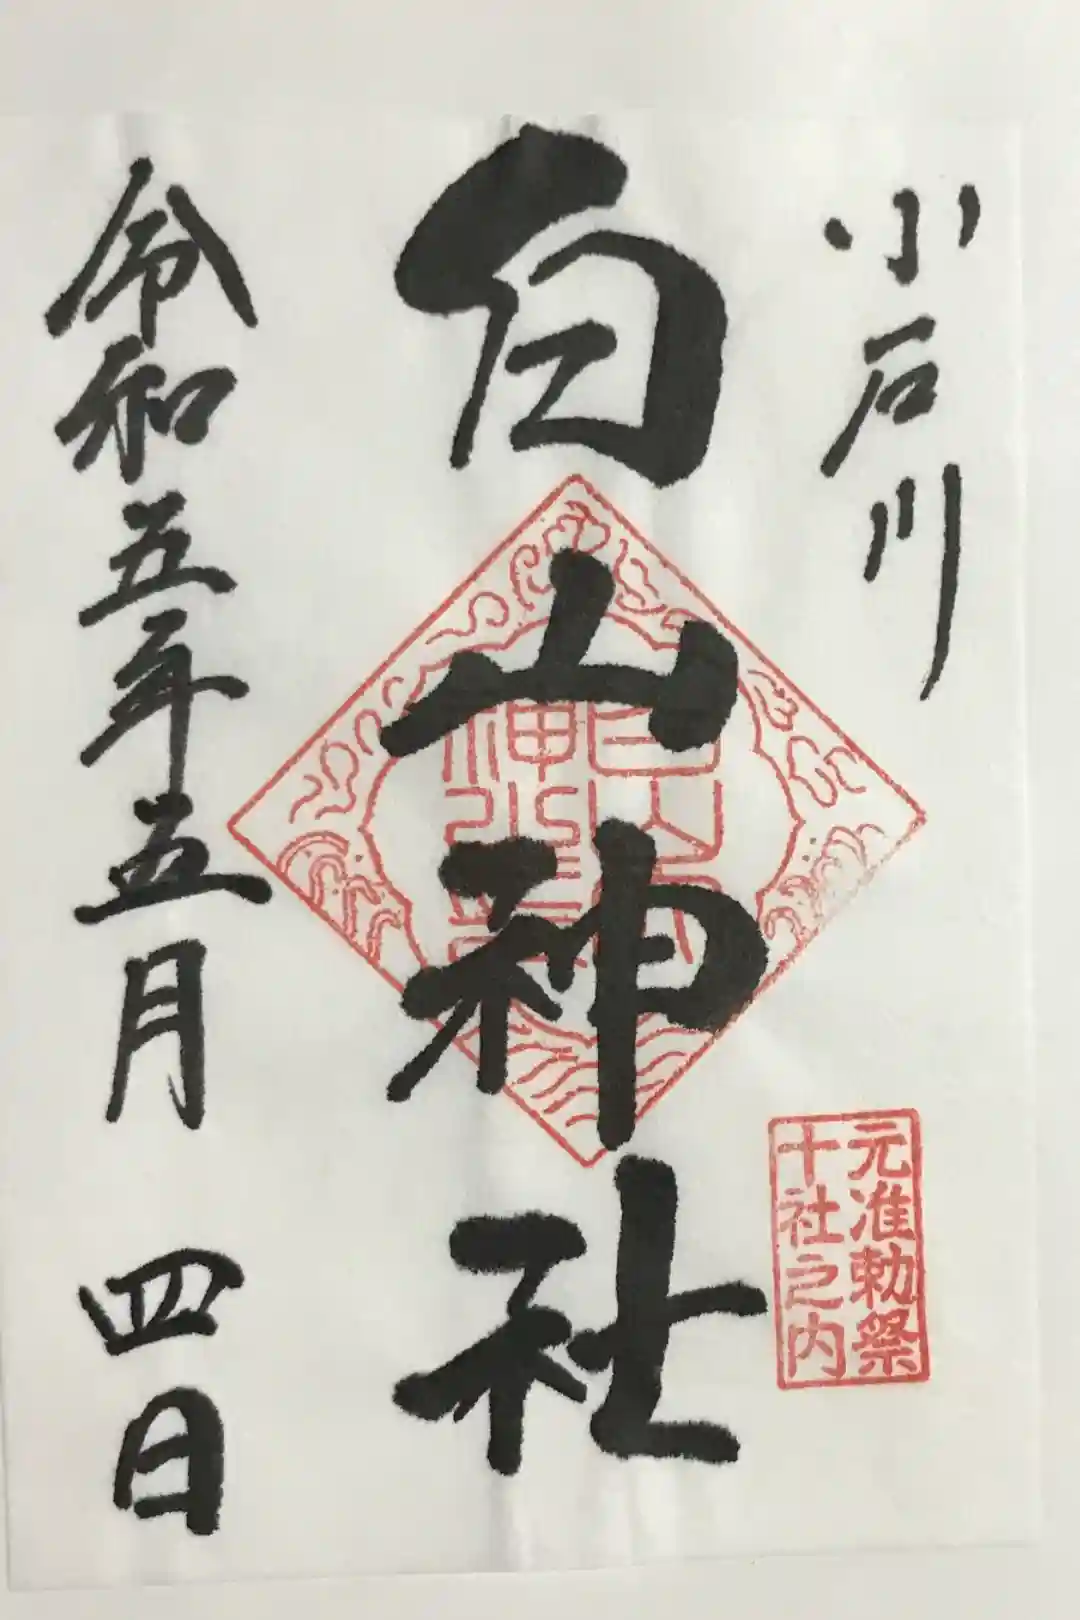 小石川
白山神社
元准勅祭
十社之内
令和五年五月四日